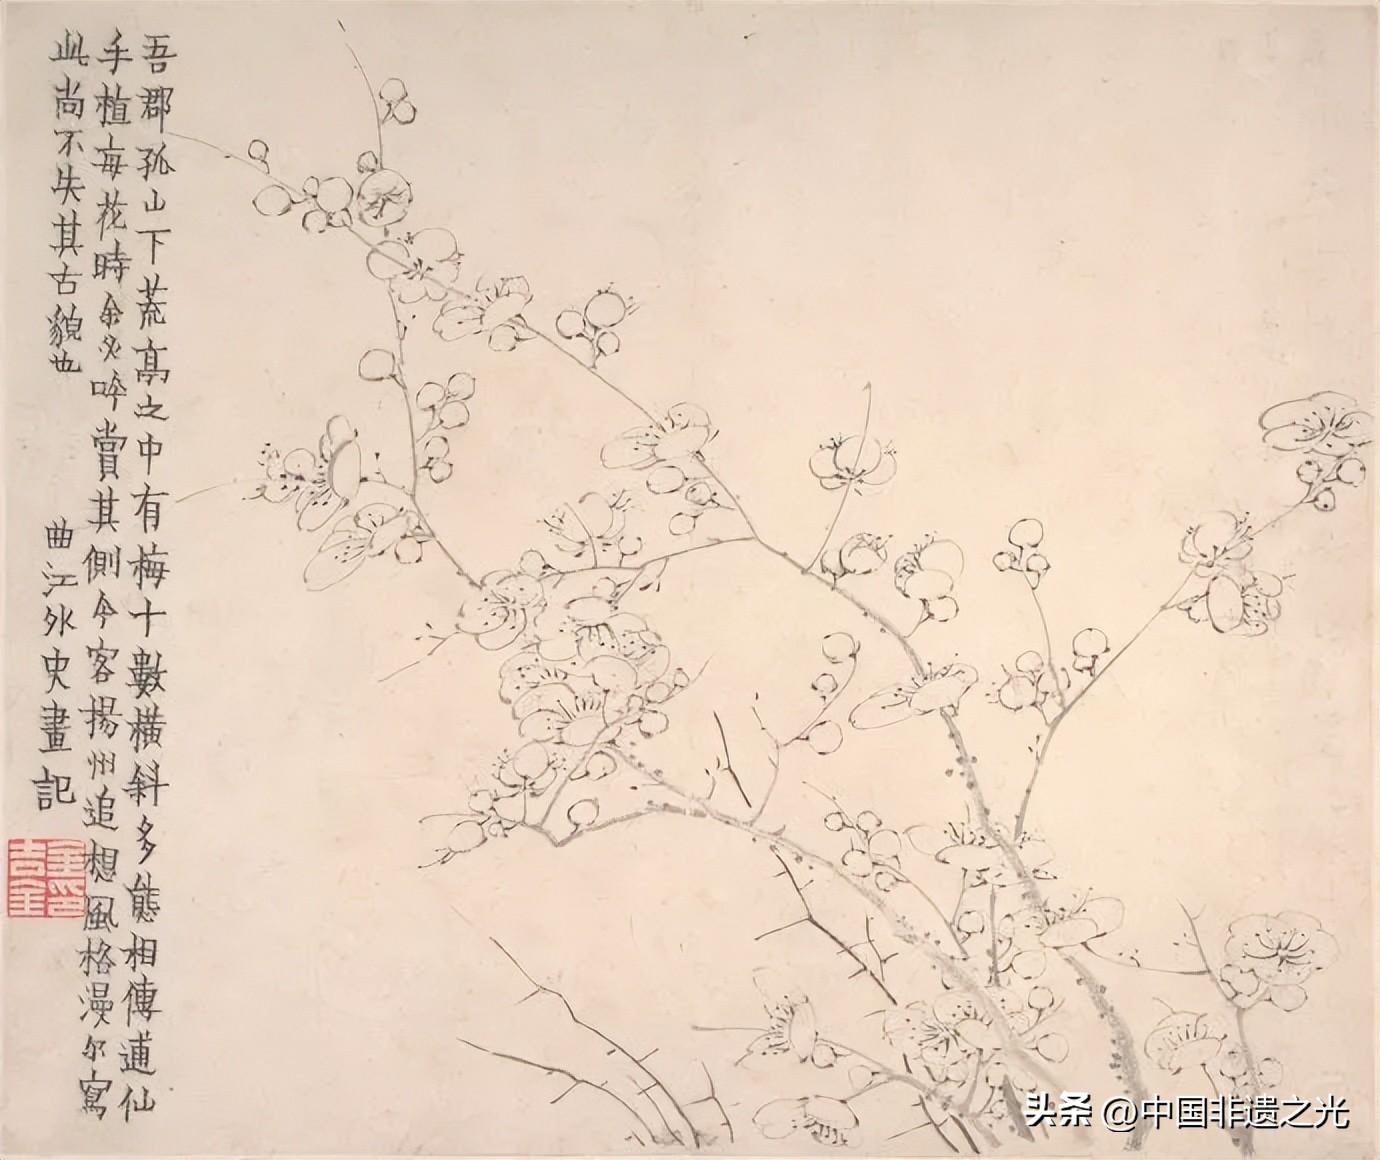 吾郡孤山下荒亭之中有梅十數橫斜多態相傳逋仙
手植每花時余必吟賞其側今客揚州追想風格漫尔寫
此尚不失其古貌也
曲江外史畫記
金吉金印
头条 @中国非遗之光